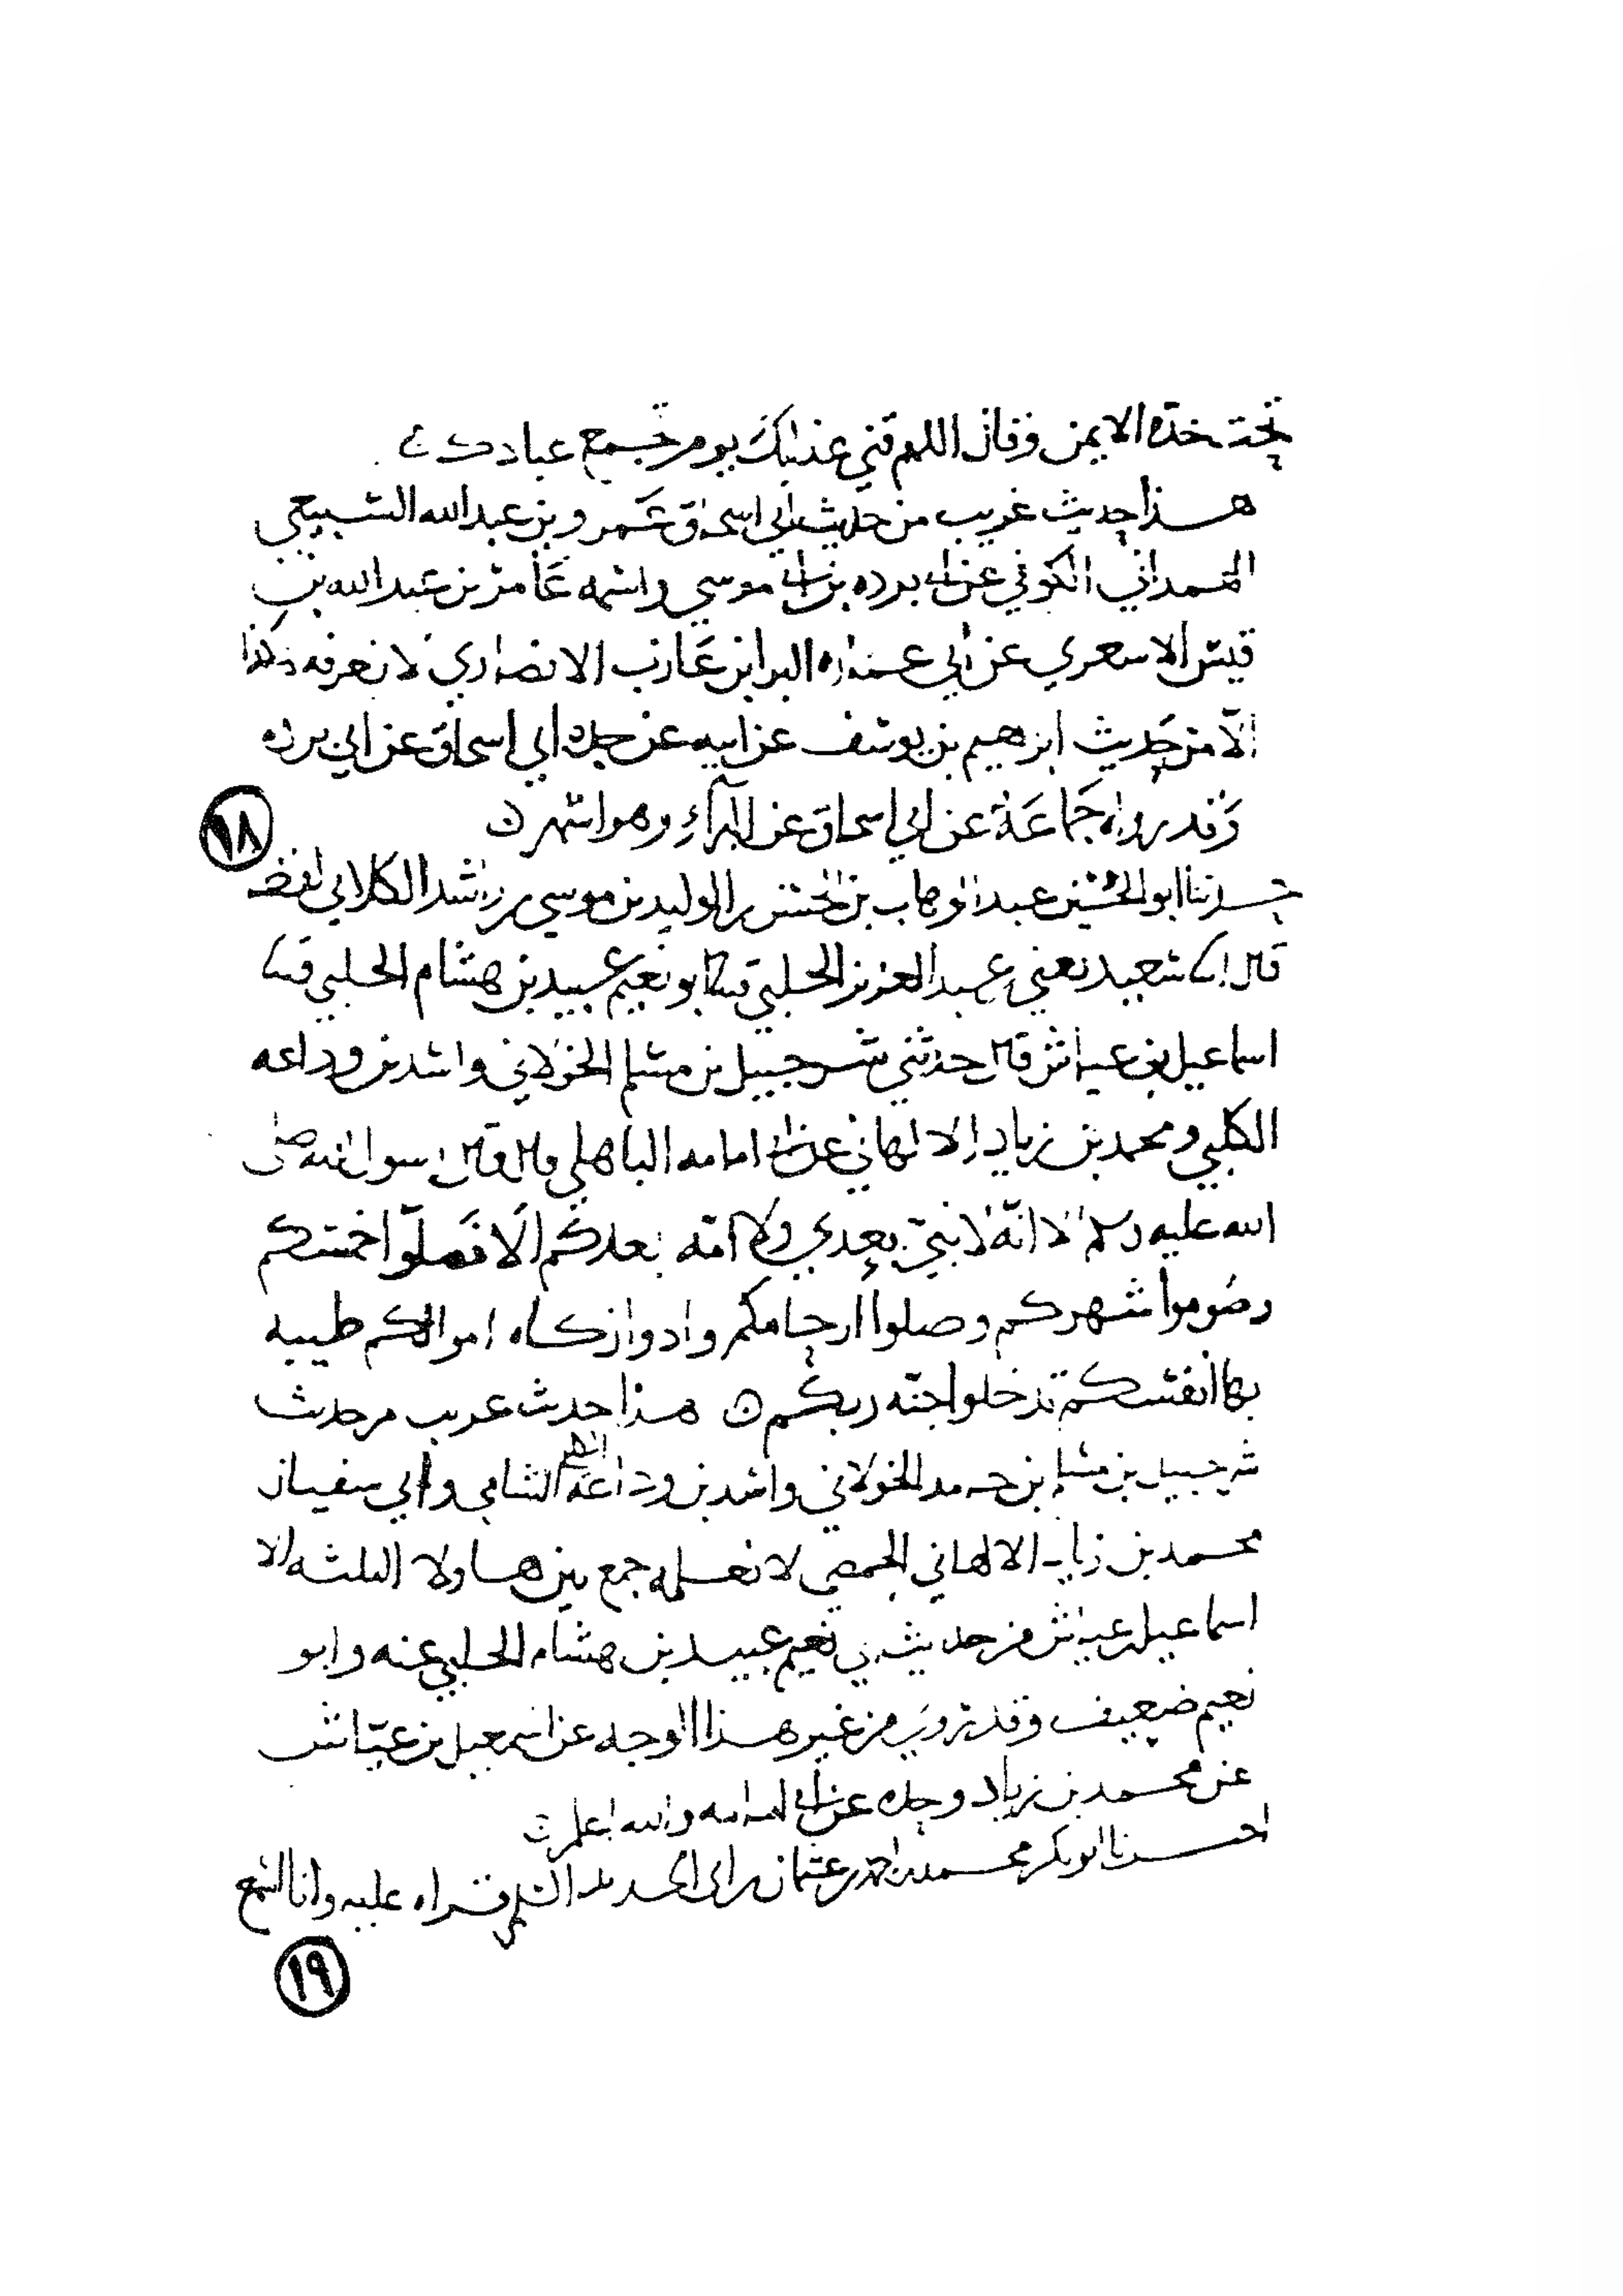 تحت خده الايمن وقال اللهم قني عذابك يوم تجمع عبادك
هذا حديث غريب من حديث ابي اسحاق عمرو بن عبدالله السبيعي
الهمداني الكوفي عن ابي برده بن ابي موسي واسمه عامر بن عبدالله بن
قيس الاسعري عن ابي عماره البرا بن عازب الانصاري لا نعرفه هكذا
الا من حديث ابرهيم بن يوسف عن ابيه عن جده ابي اسحاق عن ابي برده
وقد رواه جماعة عن ابي اسحاق عن البرآء وهو اشهر
١٨
حدثنا ابو الحسين عبدالوهاب بن الحسن بن الوليد بن موسي بن راشد الكلابي لفظا
قال ابنا سعيد يعني بن عبد العزيز الحلبي قثنا ابو نعيم عبيد بن هشام الحلبي قثنا
اسماعيل بن عياش قال حدثني شرحبيل بن مسلم الخولاني واسد بن وداعه
الكلبي ومحمد بن زياد الالهاني عن ابي امامه الباهلي قال قال رسول الله صلى
الله عليه وسلم الا انه لا نبي بعدي ولا امه بعدكم الا فصلوا خمسكم
وصوموا شهركم وصلوا ارحامكم وادوا زكاه اموالكم طيبه
بها انفسكم تدخلوا جنه ربكم هذا حديث غريب من حديث
شرحبيل بن مسلم بن حامد الخولاني واسد بن وداعة الكلبي الشامي وابي سفيان
محمد بن زياد الالهاني الحمصي لا نعلمه جمع بين هاولا الثلثه الا
اسماعيل بن عياش من حديث ابي نعيم عبيد بن هشام الحلبي عنه وابو
نعيم ضعيف وقد روي من غير هذا الوجه عن اسمعيل بن عياش
عن محمد بن زياد وحده عن ابي امامه والله اعلم
اخبرنا ابو بكر محمد بن احمد بن عثمان بن ابي الحديد السلمي قراه عليه وانا اسمع
١٩